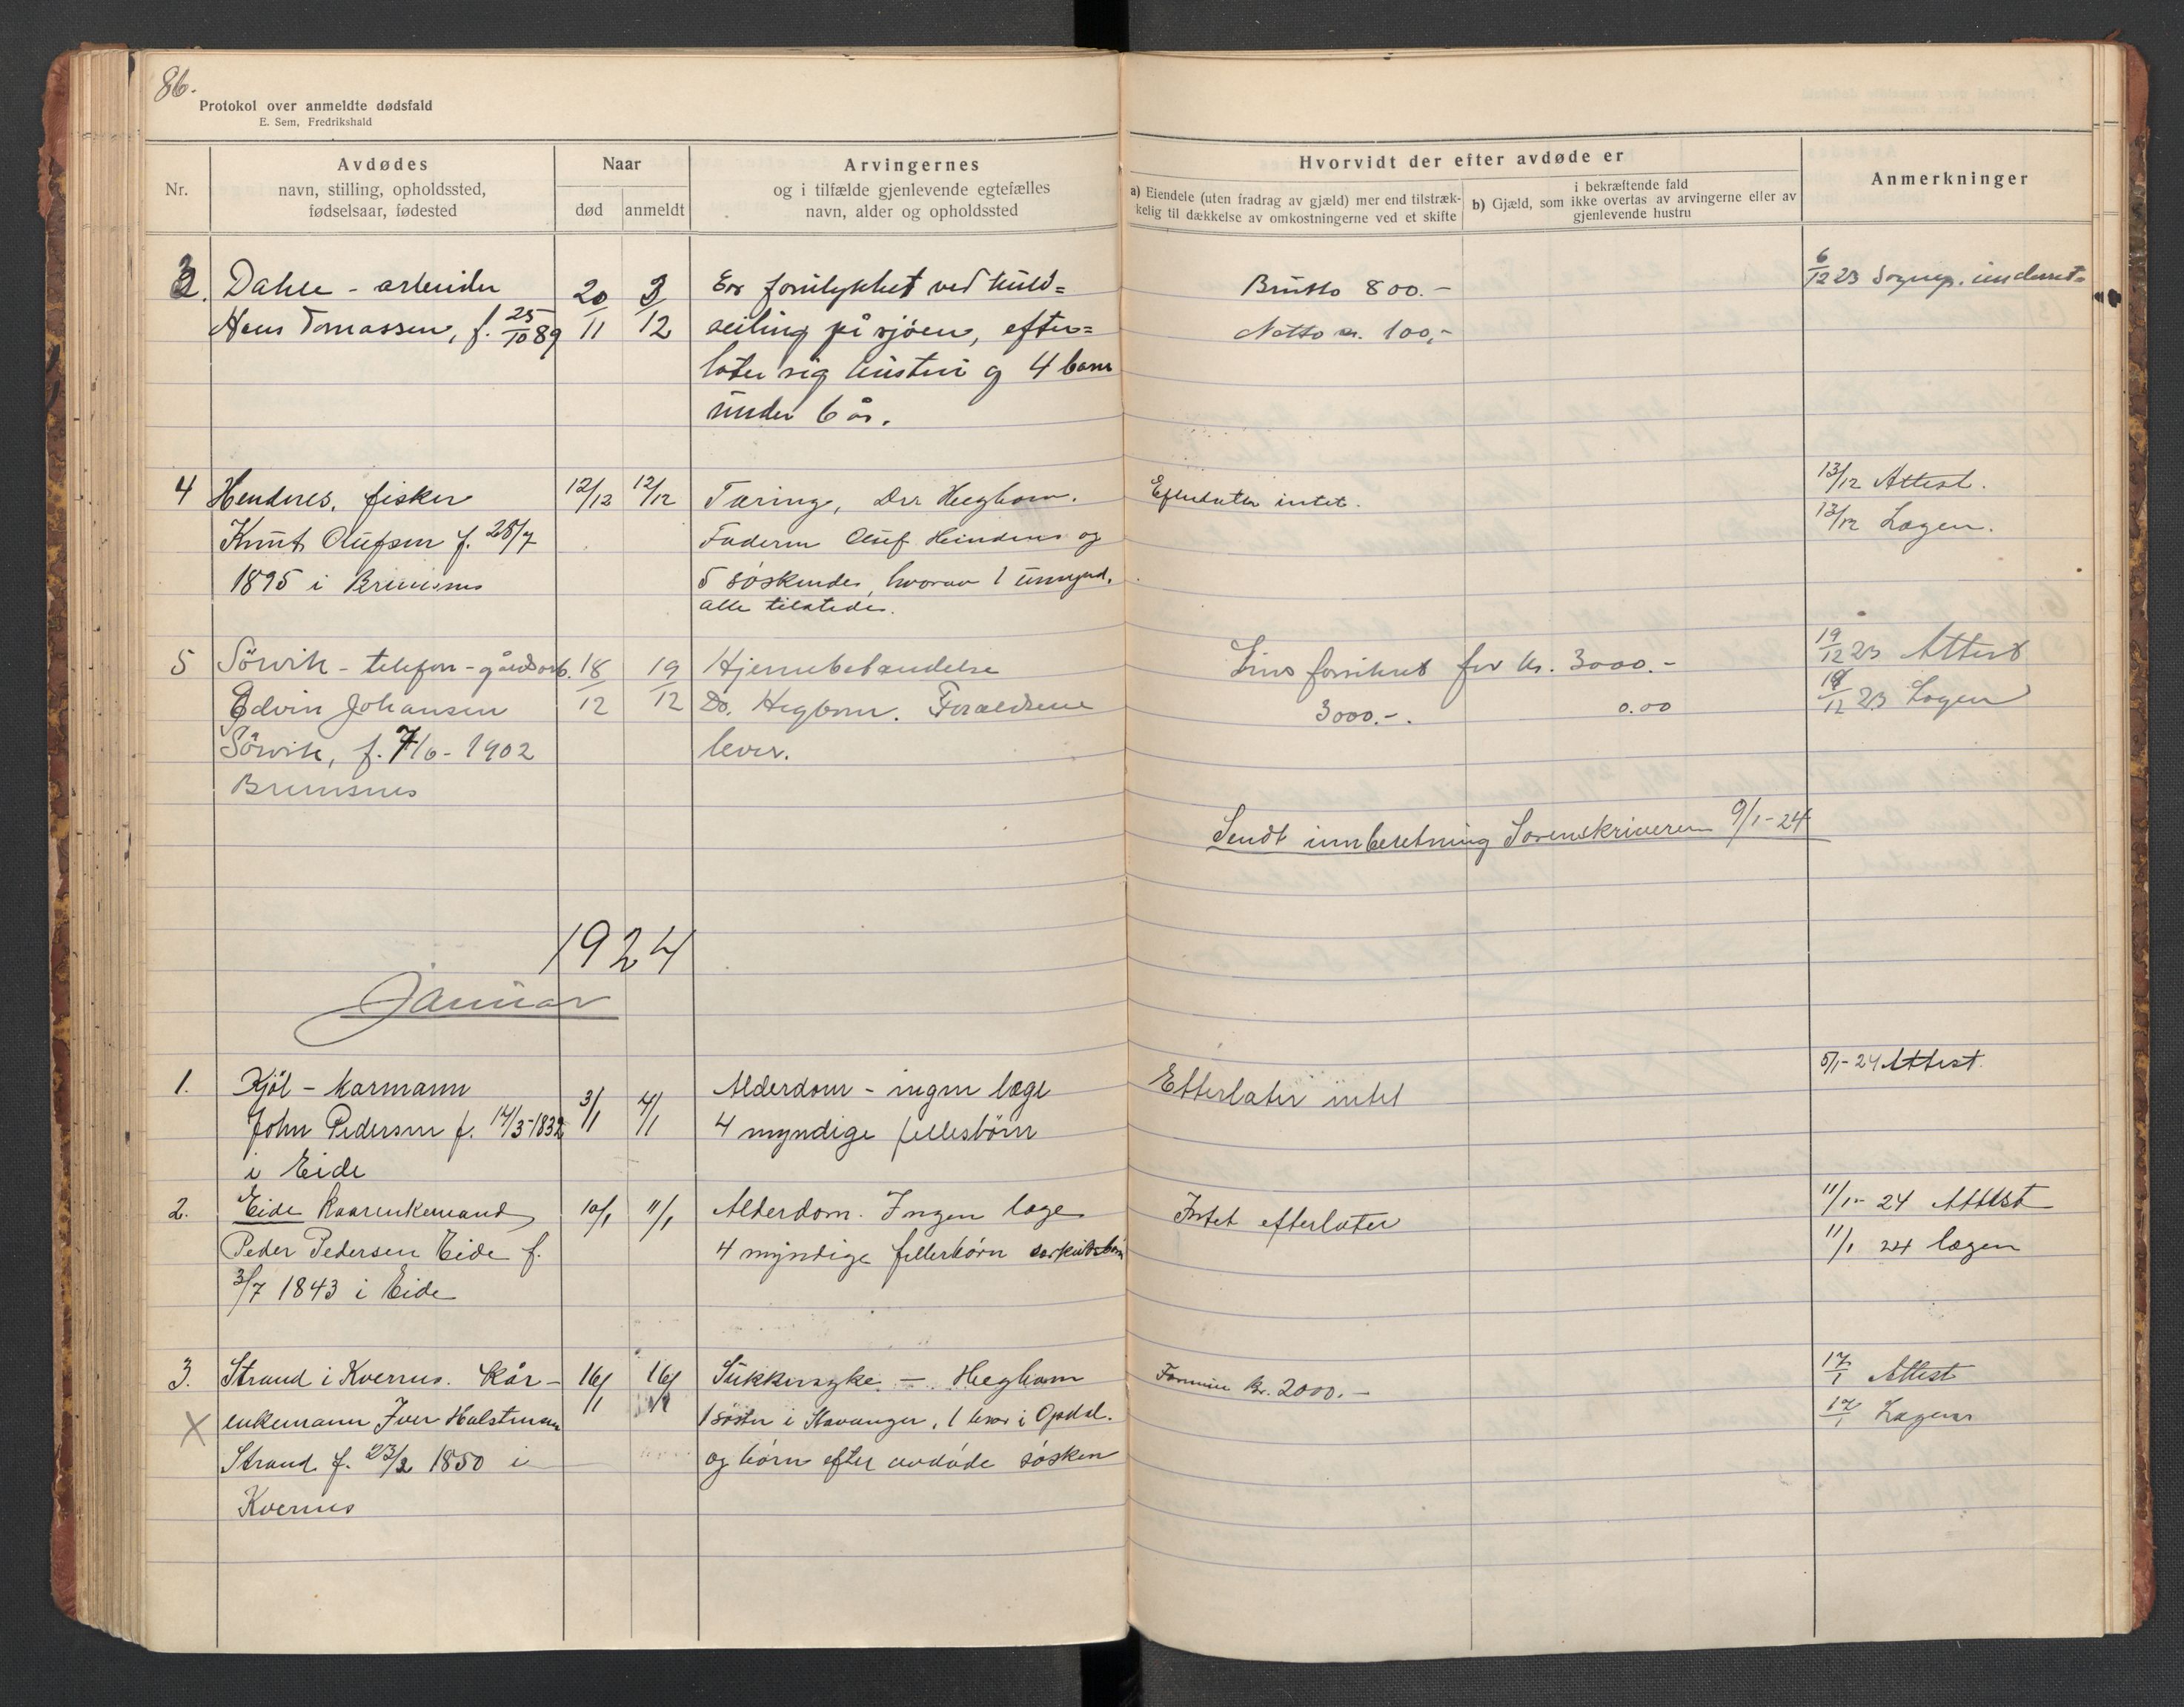 86.
Protokol over anmeldte dødsfald
E. Sem, Fredrikshald
Nr.
Avdødes
navn, stilling, opholdssted,
fødselsaar, fødested
Naar
død
anmeldt
Arvingernes
og i tilfælde gjenlevende egtefælles
navn, alder og opholdssted
Hvorvidt der efter avdøde er
a) Eiendele (uten fradrag av gjæld) mer end tilstræk-
kelig til dækkelse av omkostningerne ved et skifte
i bekræftende fald
b) Gjæld, som ikke overtas av arvingerne eller av
gjenlevende hustru
Anmerkninger
3. Dahle - arbeider 20/11 3/12 Er forulykket ved kuld=
Hans Tomassen, f. 25/10 89 seiling på sjøen, efter=
later sig hustru og 4 barn
under 6 år.
Brutto 800.-
Netto 100,-
6/12 23 Sognep. underret=
4 Hendnes, fisker 12/12 12/12 Tæring, Drr Hegbom.
Knut Olufsen f. 28/7 Faderen Oluf Hendnes og
1895 i Bremsnes 5 søskende, hvorav 1 umynd.
alle tilstede.
Efterlater intet.
13/12 Attest.
13/12 Lægen.
5 Sörvik - telefon - gårdsarb. 18/12 19/12 Hjernebetændelse
Edvin Johansen Dr. Hegbom. Foræeldrene
Sörvik, f. 7/6 - 1902 lever.
Bremsnes
Livsforsikret for kr. 3000.-
3000.-. 0.00
19/12 23 Attest
19/12 23 Lægen
Sendt innberetning Sorenskriveren 9/1-24
1924
Januar
1. Kjöl - karmann 3/1 4/1 Alderdom - ingen læge
John Pedersen f. 14/3-1832 4 myndige fellesbørn
i Eide
Etterlater intet
5/1-24 Attest.
2. Eide kaarenkemand 10/1 11/1 Alderdom. Ingen læge
Peder Pedersen Eide f. 4 myndige fellesbørn særkuldsbørn
3/7 1843 i Eide
Intet efterlater
11/1- 24 Attest
11/1 24 lægen
3. Strand i Kvernes. Kår- 16/1 16/1 Sukkersyke. - Hegbom
X enkemann Iver Halstensen 1 søster i Stavanger, 1 bror i Opdal.
Strand f. 23/2 1850 i og børn efter avdøde søsken
Kvernes
Formue kr. 2000.-
17/1 Attest
17/1 Lægen